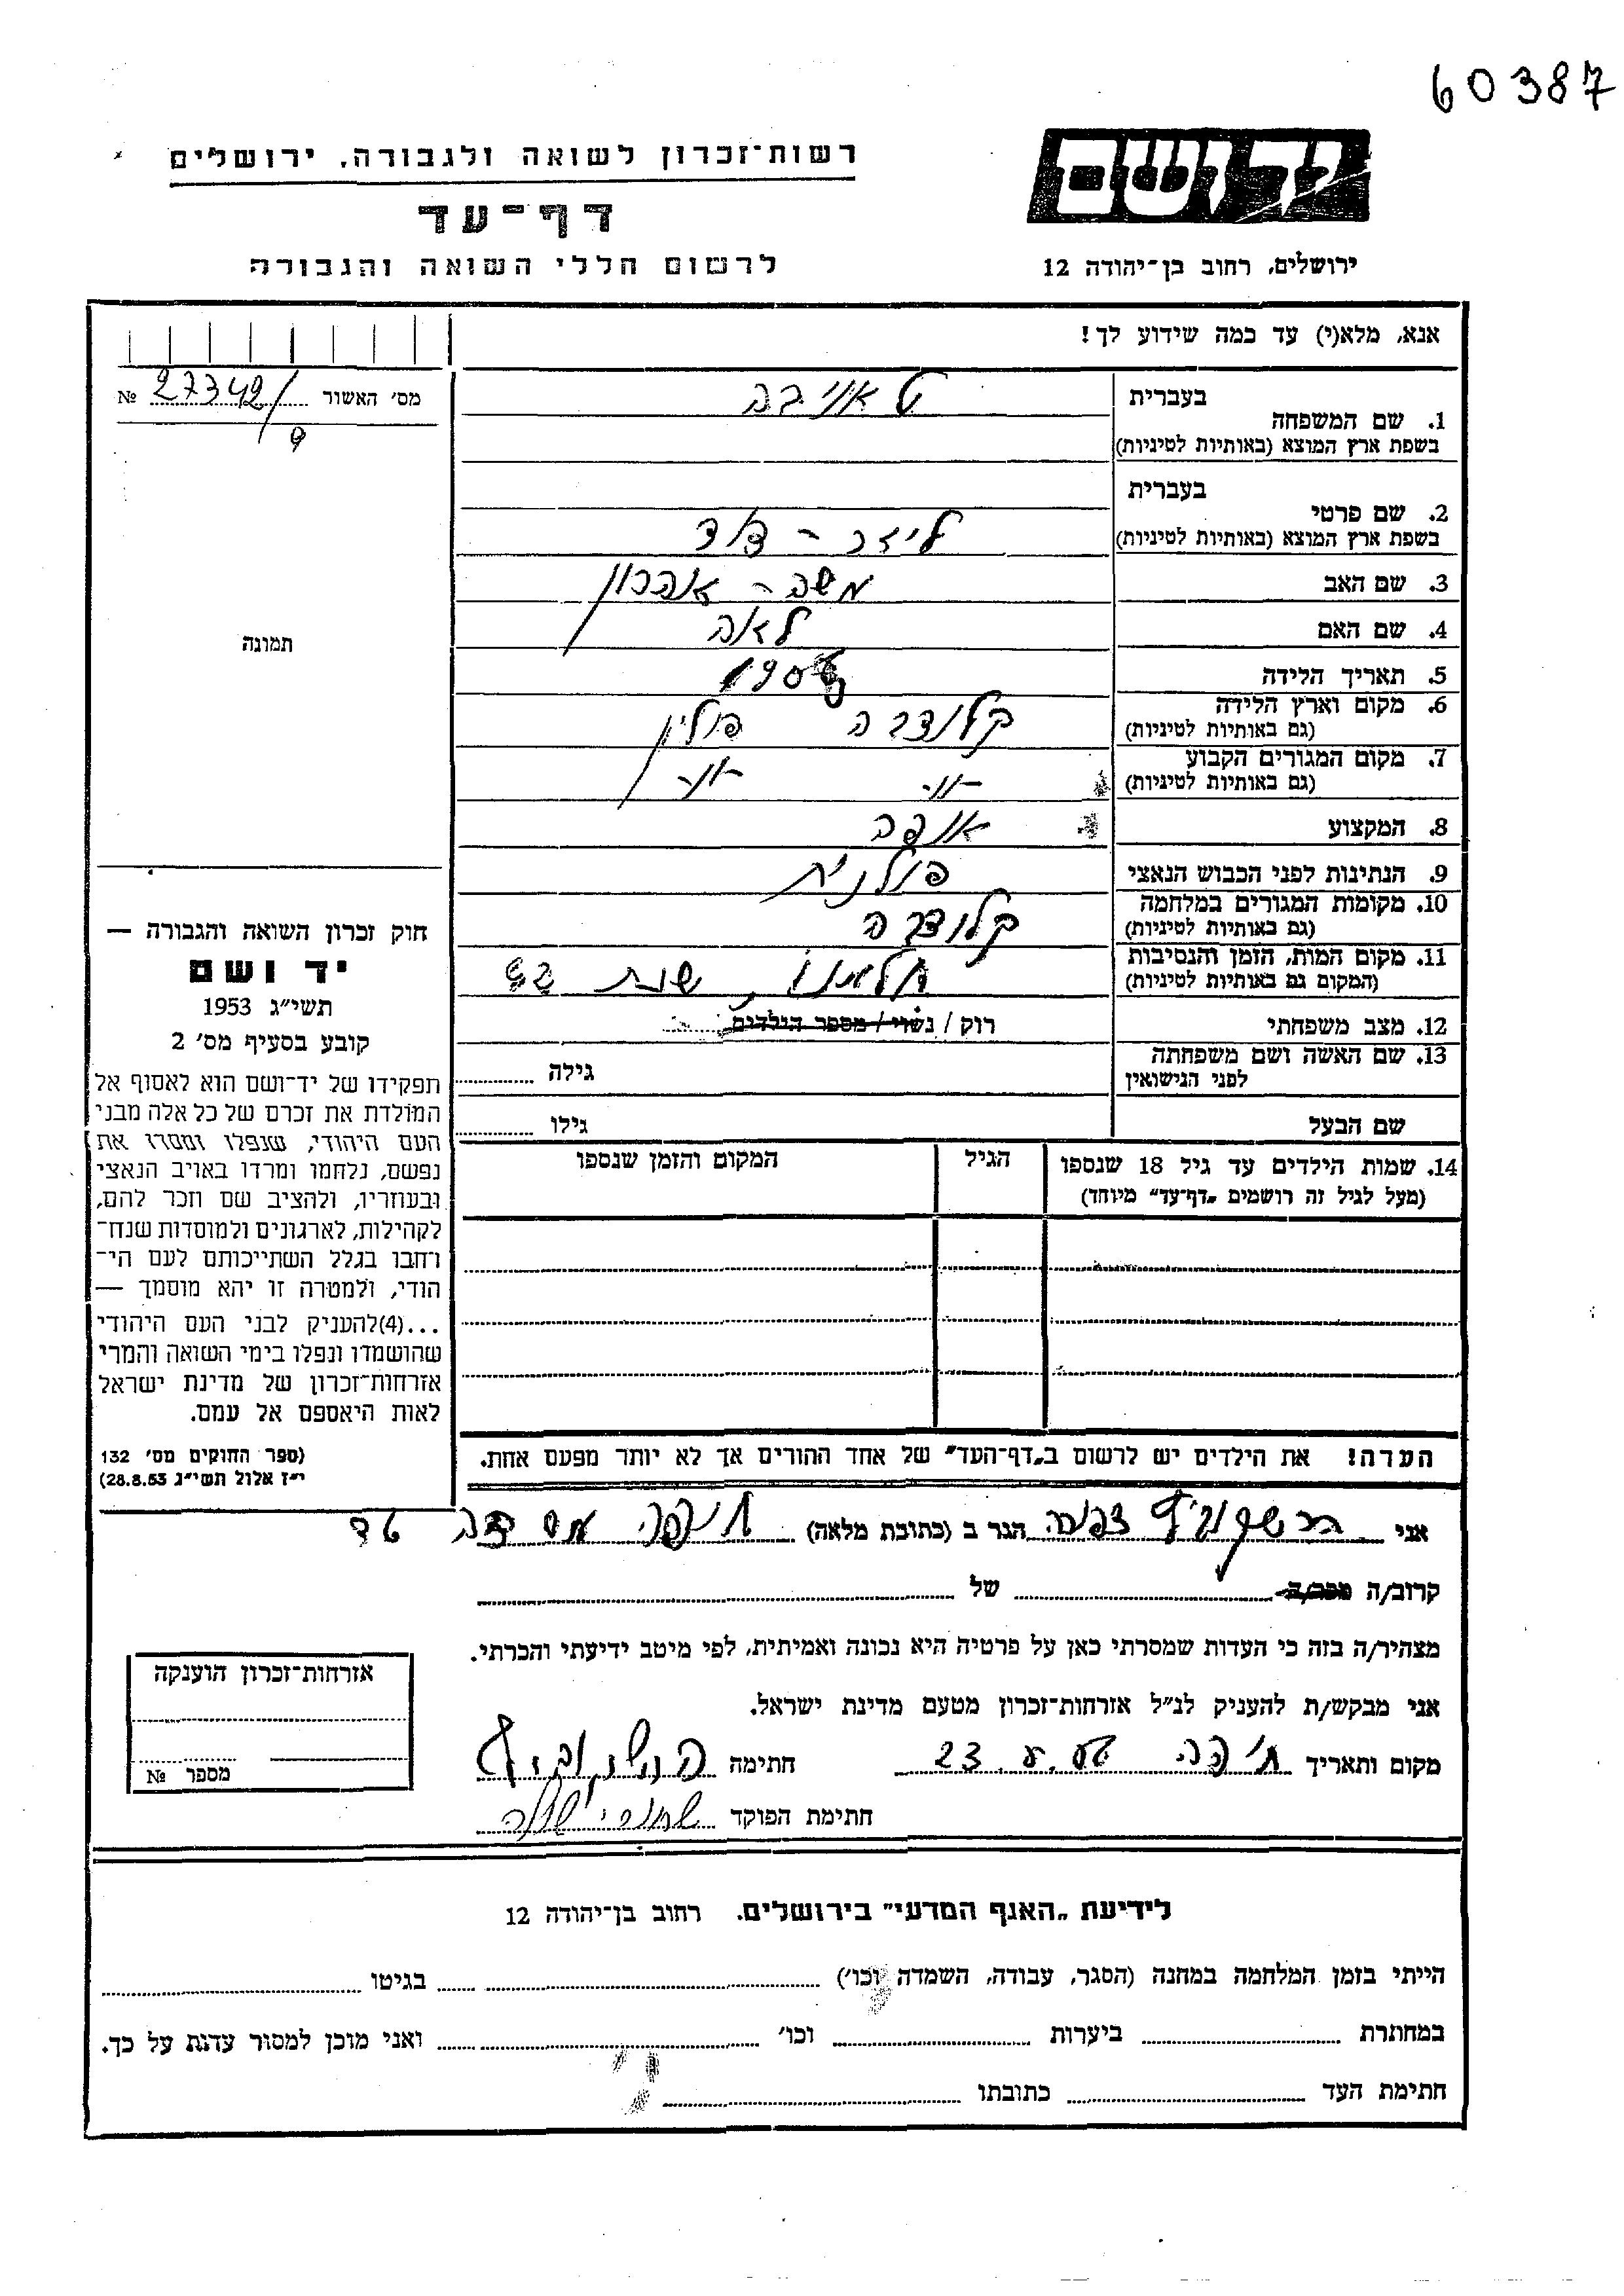 60387
יד ושם
רשות־זכרון לשואה ולגבורה, ירושלים
דף־עד
ירושלים, רחוב בן־יהודה 12
לרשום חללי השואה והגבורה
אנא, מלא(י) עד כמה שידוע לך!
מס׳ האשור 27342/9 №
בעברית
1. שם המשפחה
בשפת ארץ המוצא (באותיות לטיניות)
בעברית
2. שם פרטי
בשפת ארץ המוצא (באותיות לטיניות)
ליזר - דוד
3. שם האב משה - אהרון
4. שם האם לאה
תמונה
5. תאריך הלידה
6. מקום וארץ הלידה
(גם באותיות לטיניות)
קלודבה פולין
7. מקום המגורים הקבוע
(גם באותיות לטיניות)
-"- -"-
8. המקצוע אופה
9. הנתינות לפני הכבוש הנאצי פולנית
10. מקומות המגורים במלחמה
(גם באותיות לטיניות)
קלודבה
11. מקום המות, הזמן והנסיבות
(המקום גם באותיות לטיניות)
חלמנו, שנת
12. מצב משפחתי רוק / נשוי / מספר הילדים
13. שם האשה ושם משפחתה
לפני הנישואין
גילה
שם הבעל גילו
14. שמות הילדים עד גיל 18 שנספו
(מעל לגיל זה רושמים „דף־עד״ מיוחד)
הגיל
המקום והזמן שנספו
חוק זכרון השואה והגבורה —
יד ושם
תשי״ג 1953
קובע בסעיף מס׳ 2
תפקידו של יד־ושם הוא לאסוף אל
המולדת את זכרם של כל אלה מבני
העם היהודי, שנפלו ומסרו את
נפשם, נלחמו ומרדו באויב הנאצי
ובעוזריו, ולהציב שם וזכר להם,
לקהילות, לארגונים ולמוסדות שנח־
רחבו בגלל השתייכותם לעם הי־
הודי, ולמטרה זו יהא מוסמך —
...(4)להעניק לבני העם היהודי
שהושמדו ונפלו בימי השואה והמרי
אזרחות־זכרון של מדינת ישראל
לאות היאספם אל עמם.
(ספר החוקים מס׳ 132
י״ז אלול תשי״ג 28.8.53)
הערה! את הילדים יש לרשום ב„דף־העד״ של אחד ההורים אך לא יותר מפעם אחת.
אני הרשקוביץ צפורה הגר ב (כתובת מלאה) חיפה
קרוב/ה מכר/ה של
מצהיר/ה בזה כי העדות שמסרתי כאן על פרטיה היא נכונה ואמיתית, לפי מיטב ידיעתי והכרתי.
אני מבקש/ת להעניק לנ״ל אזרחות־זכרון מטעם מדינת ישראל.
מקום ותאריך חיפה חתימה הרשקוביץ
חתימת הפוקד
אזרחות־זכרון הוענקה
מספר №
לידיעת „האגף המדעי״ בירושלים. רחוב בן־יהודה 12
הייתי בזמן המלחמה במחנה (הסגר, עבודה, השמדה וכו׳) בגיטו
במחתרת ביערות וכו׳ ואני מוכן למסור עדות על כך.
חתימת העד כתובתו